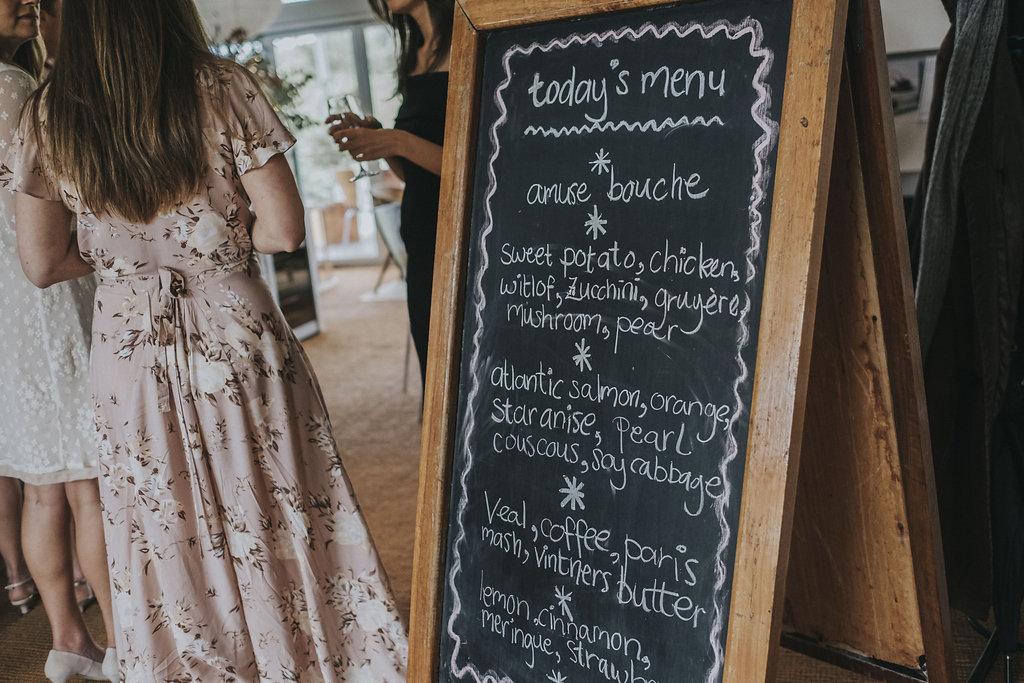 today's menu
amuse bouche
sweet potato, chicken,
witlof, zucchini, gruyère,
mushroom, pear
atlantic salmon, orange,
star anise, pearl
couscous, soy cabbage
Veal, coffee, paris
mash, vintners butter
lemon, cinnamon,
meringue,